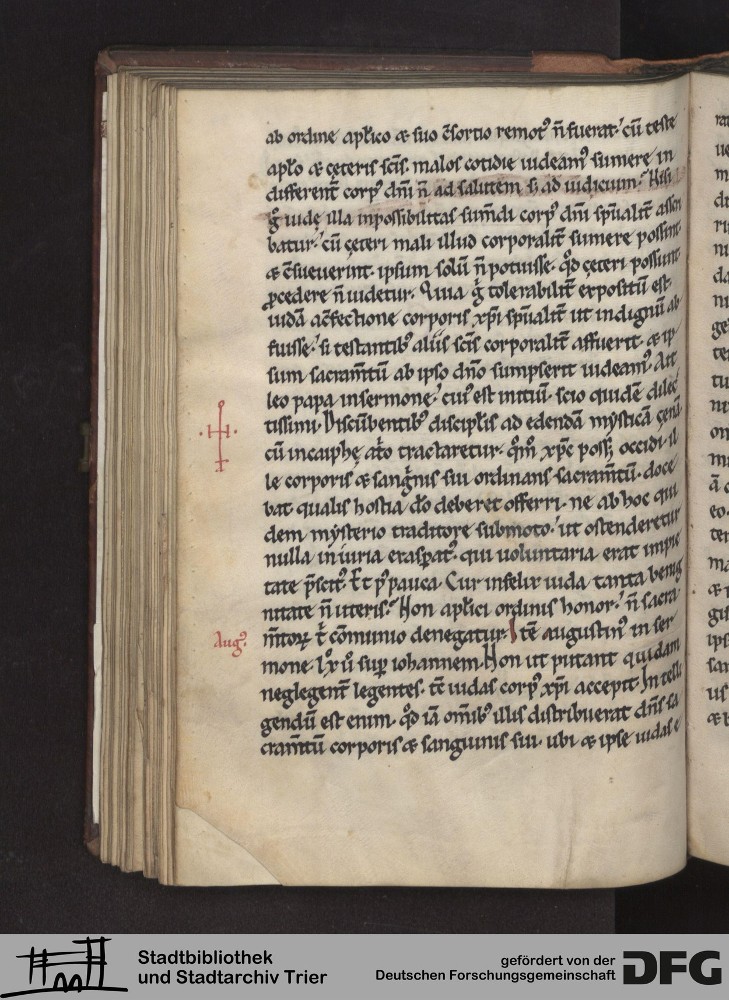 ab ordine aplico & suo c̄sortio remot᷒ n̄ fuerat. cū teste
aplo & ceteris scīs. malos cotidie uideam᷒ sumere in
different̄ corp᷒ dn̄i n̄ ad salutem s; ad iudicium. Nisi
g̊ iudę illa inpossibilitas sum̄di corp᷒ dn̄i sp̄ualit̄ asscri
batur. cū çeteri mali illud corporalit̄ sumere possint.
& c̄sueuerint. ipsum solū n̄ potuisse. qd̄ çeteri possunt
ꝓcedere n̄ uidetur. Quia g̊ tolerabilit̄ expositū est
iudā ac̄fectione corporis xp̄i sp̄ualit̄ ut indignū ab
fuisse. si testantib᷒ aliis scīs corporalit̄ affuerit. & ip
sum sacram̄tū ab ipso dn̄o sumpserit uideam᷒. Ait
leo papa in sermone. cui᷒ est initiū. scio quidē dilec
tissimi. Discūbentib᷒ discipl̄is ad edendā mysticā çenā
cū in caiphę at̄o tractaretur. qm̄ xp̄c poss; occidi. il
le corporis & sang̅nis sui ordinans sacram̄tū. doce
bat qualis hostia d̄o deberet offerri. ne ab hoc qui
dem mysterio traditore submoto. ut ostenderetur
nulla iniuria exasꝑat᷒. qui uoluntaria erat impie
tate p̄scit᷒. Et p᷒ pauca. Cur infelix iuda tanta benig
nitate n̄ uteris. Non apl̄ici ordinis honor. n̄ sacra
m̄toꝝ t̄ cōmunio denegatur. Itē augustin᷒ in ser
Aug᷒.
mone. lx. ii sup̄ iohannem. Non ut putant quidam
neglegent̄ legentes. tc̄ iudas corp᷒ xp̄i accepit. Intelli
gendū est enim. qd̄ iā om̄ib᷒ illis distribuerat dn̄s sa
cram̄tū corporis & sanguinis sui. ubi & ipse iudas e
Stadtbibliothek
und Stadtarchiv Trier
gefördert von der
Deutschen Forschungsgemeinschaft
DFG